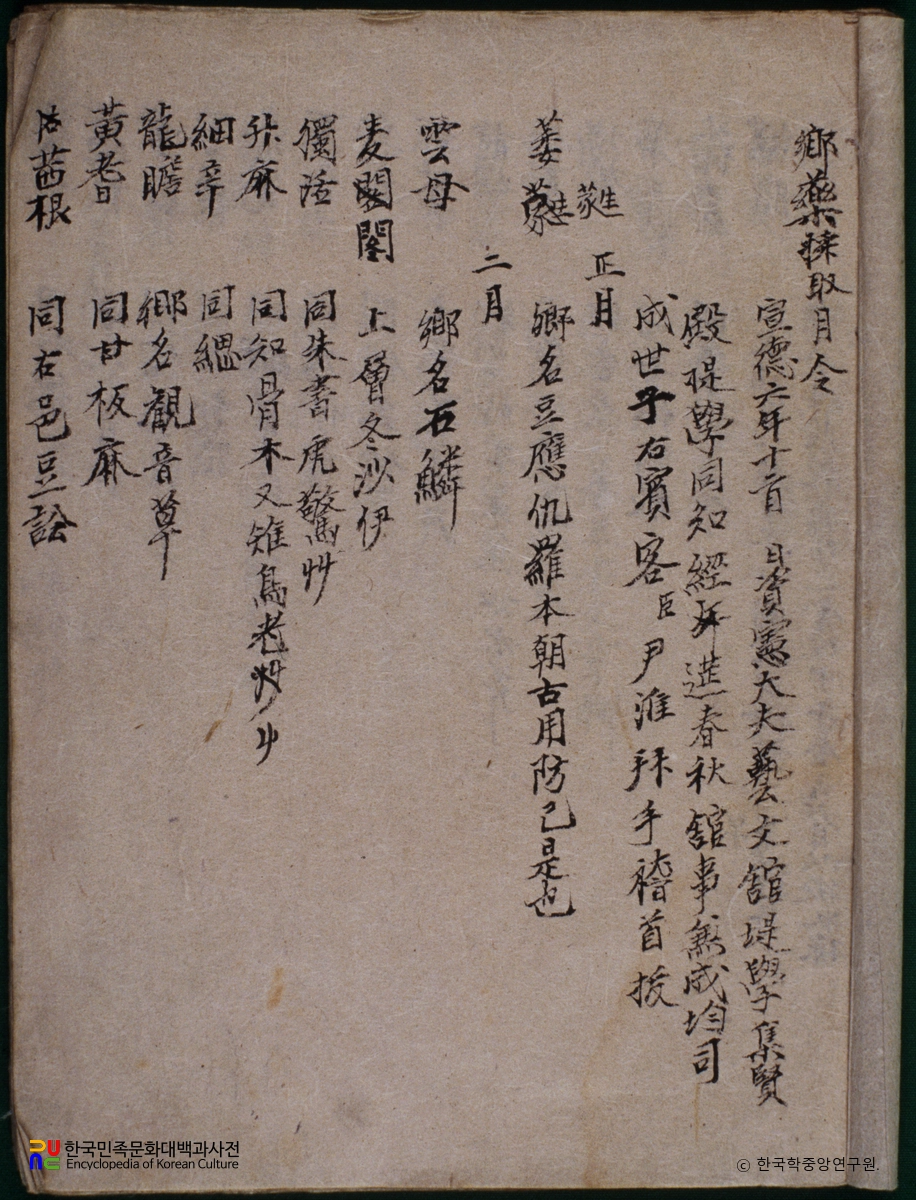 鄕藥採取月令
宣德六年十二月 日資憲大夫藝文舘堤學集賢
殿提學同知經筵春秋舘事無成均司
成世子右賓客臣尹淮拜手稽首拔
正月
萎蕤 鄕名豆應仇羅本朝古用防己是也
二月
雲母 鄕名石鱗
麦門冬 上層冬沙伊
獨活 同朱書虎驚艸
升麻 同知骨木又雉鳥老艸
細辛 同緦
龍膽 鄕名觀音草
黃耆 同甘板麻
茜根 同右邑豆訟
한국민족문화대백과사전
Encyclopedia of Korean Culture
ⓒ 한국학중앙연구원.